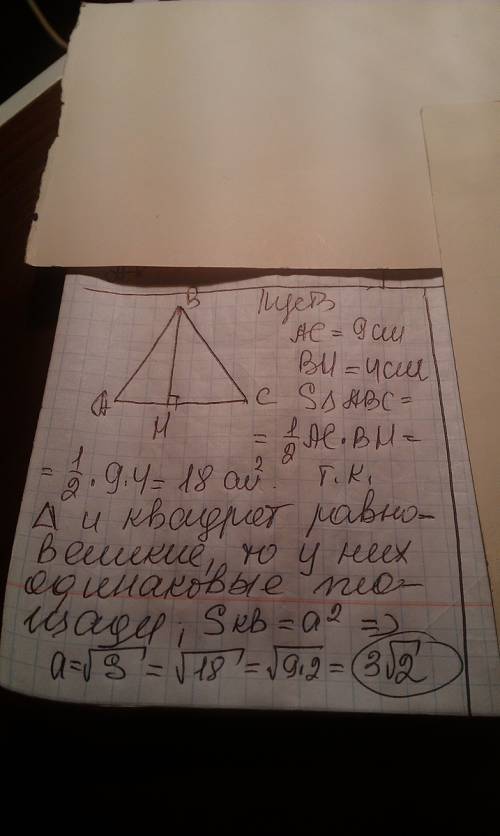 B
A
H
C
Пусть
AC = 9 см
BH = 4 см
S Δ ABC =
= 1/2 AC · BH =
= 1/2 · 9 · 4 = 18 см². т.к.
Δ и квадрат равно-
великие, то у них
одинаковые пло-
щади; Sкв = a² =>
a = √S = √18 = √9·2 = 3√2